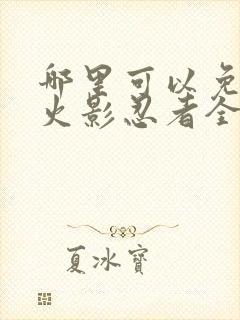 哪里可以免
火影忍者全
夏冰寶